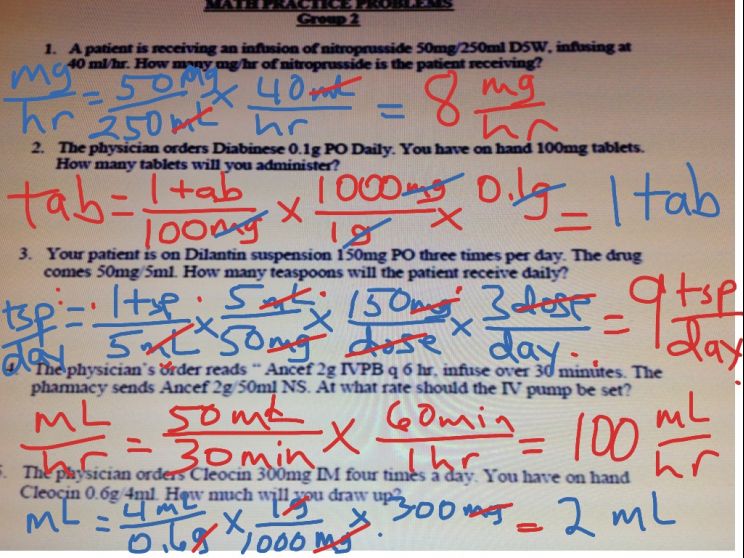 MATH PRACTICE PROBLEMS
Group 2
1. A patient is receiving an infusion of nitroprusside 50mg/250ml D5W, infusing at
40 ml/hr. How many mg/hr of nitroprusside is the patient receiving?
mg/hr = 50 mg/250 mL × 40 mL/hr = 8 mg/hr
2. The physician orders Diabinese 0.1g PO Daily. You have on hand 100mg tablets.
How many tablets will you administer?
tab = 1 tab/100mg × 1000mg/1g × 0.1g = 1 tab
3. Your patient is on Dilantin suspension 150mg PO three times per day. The drug
comes 50mg/5ml. How many teaspoons will the patient receive daily?
tsp/day = 1 tsp/5mL × 5 mL/50mg × 150mg/dose × 3 dose/day = 9 tsp/day
The physician's order reads " Ancef 2g IVPB q 6 hr, infuse over 30 minutes. The
pharmacy sends Ancef 2g/50ml NS. At what rate should the IV pump be set?
mL/hr = 50 mL/30 min × 60min/1 hr = 100 mL/hr
5. The physician orders Cleocin 300mg IM four times a day. You have on hand
Cleocin 0.6g/4ml. How much will you draw up?
mL = 4 mL/0.6g × 1g/1000 mg × 300 mg = 2 mL